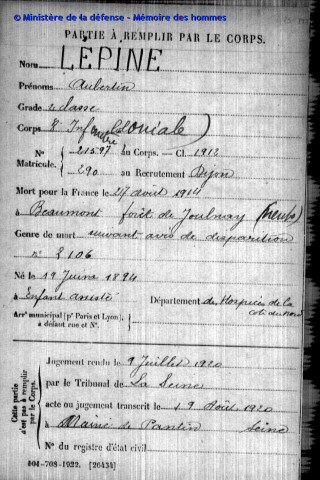 © Ministère de la défense - Mémoire des hommes
PARTIE À REMPLIR PAR LE CORPS.
Nom LÉPINE
Prénoms Aubertin
Grade 2e classe
Corps 8e Infanterie Coloniale
N° 21597 au Corps. — Cl. 1912
Matricule. 290 au Recrutement Dijon
Mort pour la France le 27 avril 1914
à Beaumont forêt de
Genre de mort suivant avis de disparition
n° 2106
Né le 19 Juin 1894
à Enfant assisté Département des Hospices de la
Côte du Nord
Arrt municipal (pr Paris et Lyon),
à défaut rue et N°.
Cette partie
n'est pas à remplir
par le Corps.
Jugement rendu le 9 Juillet 1920
par le Tribunal de La Seine
acte ou jugement transcrit le 19 Août 1920
à Mairie de Pantin Seine
N° du registre d'état civil
101-708-1922. [26434]